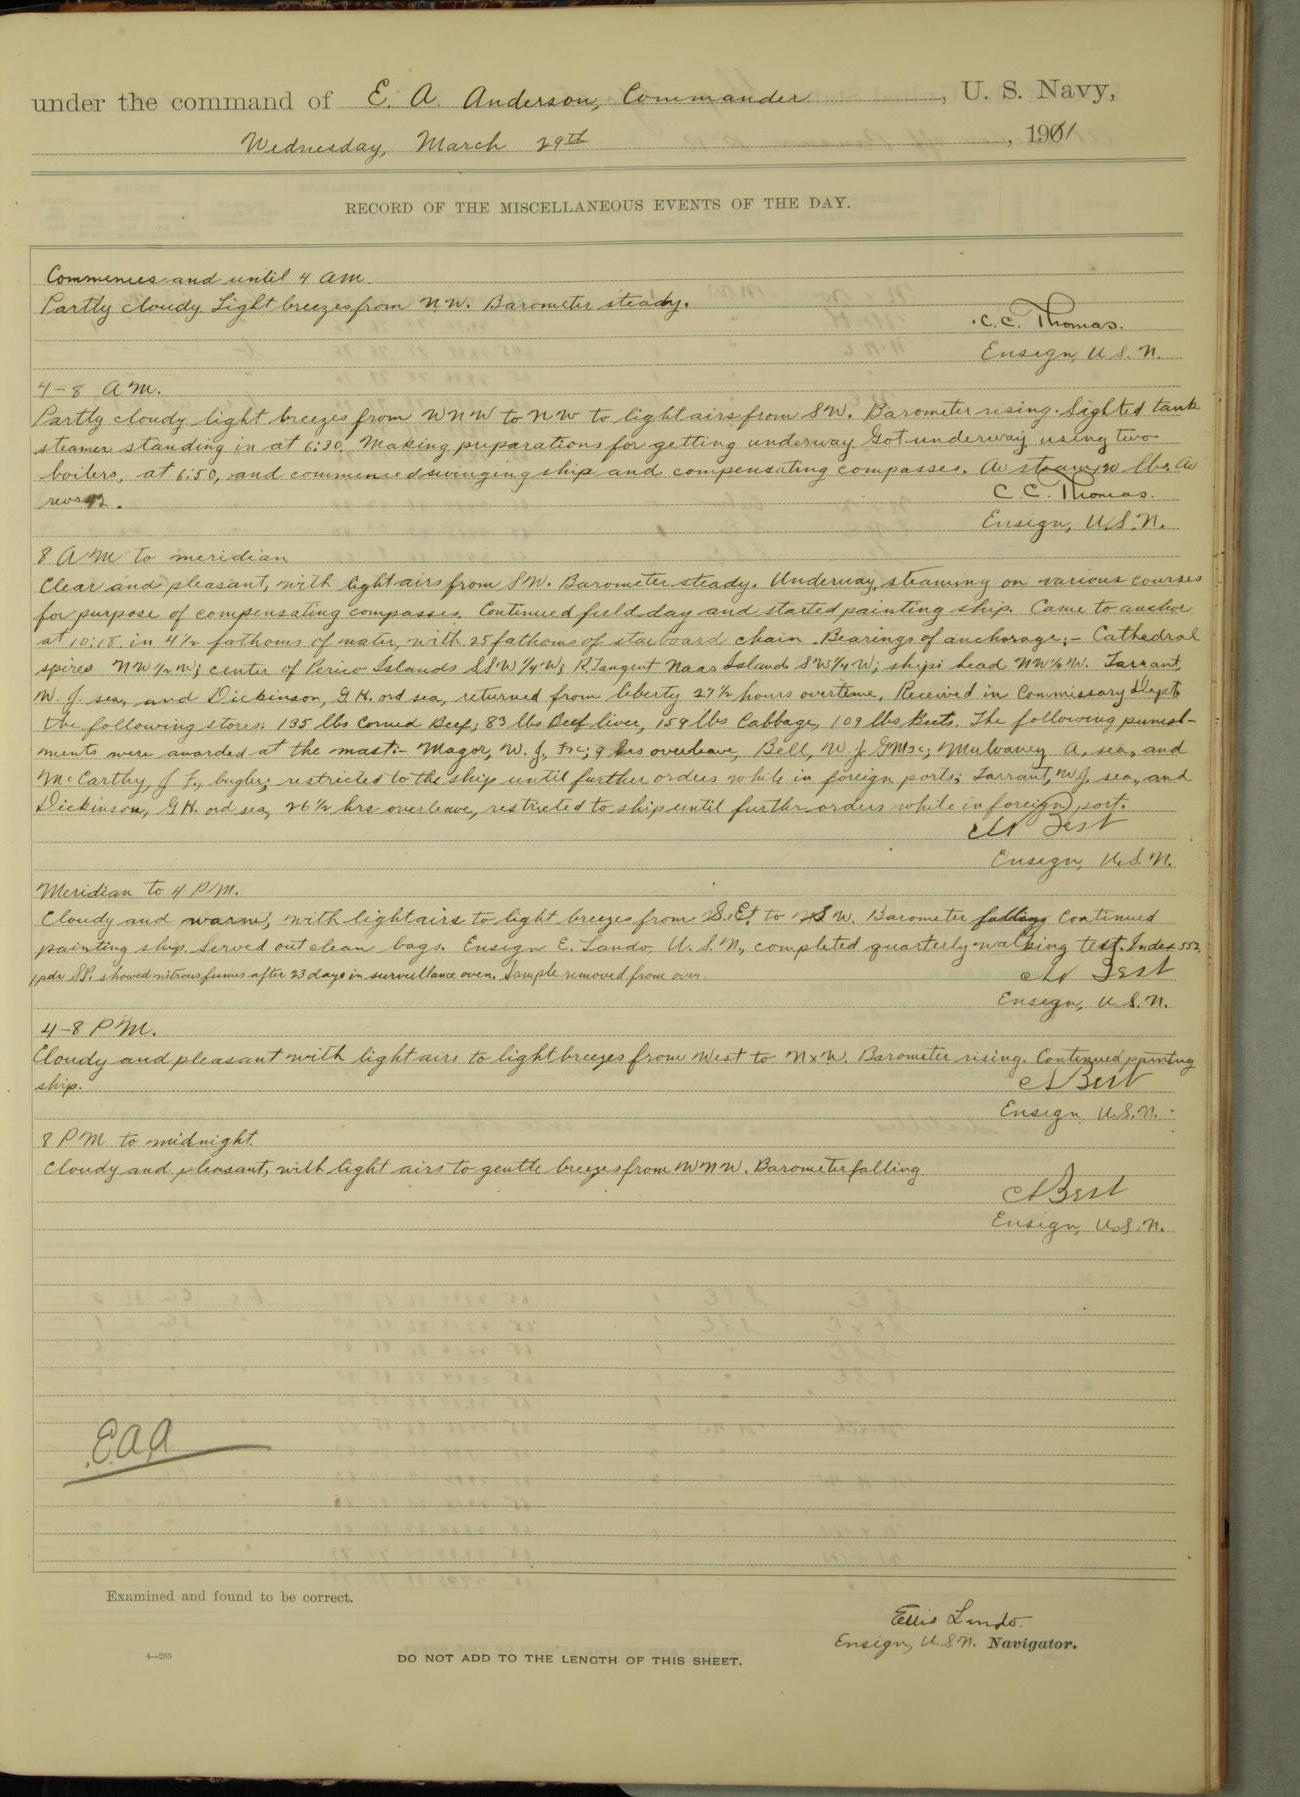 under the command of E. A. Anderson, Commander, U. S. Navy,
Wednesday, March 29th, 1911
RECORD OF THE MISCELLANEOUS EVENTS OF THE DAY.
Commences and until 4 AM.
Partly cloudy Light breezes from N.W. Barometer steady.
C. C. Thomas.
Ensign, U.S.N.
4-8 AM.
Partly cloudy light breezes from WNW to NW to light airs from SW. Barometer rising. Sighted tank
steamer standing in at 6:30. Making preparations for getting underway Got underway using two
boilers, at 6:50, and commenced swinging ship and compensating compasses. Av steam, lbs, Av
revs 92.
C. C. Thomas.
Ensign, U.S.N.
8 AM to meridian
Clear and pleasant, with light airs from SW. Barometer steady. Underway, steaming on various courses
for purpose of compensating compasses. Continued field day and started painting ship. Came to anchor
at 10:18 in 4 1/2 fathoms of water, with 25 fathoms of starboard chain. Bearings of anchorage:- Cathedral
spires NW 1/2 W; center of Perico Islands SSW 1/4 W; R. Tangent Naos Island SW 1/4 W; ships head NW 1/2 W. Tarrant,
W. J. sea, and Dickinson, G.H. ord sea, returned from liberty 27 1/2 hours overtime. Received in Commissary Dept
the following stores: 135 lbs Corned Beef; 83 lbs Beef liver, 159 lbs Cabbage, 109 lbs Beets. The following punish-
ments were awarded at the mast:- Magor, W. J., 9 hrs overleave, Bell, W. J. GM3c; Mulvaney A, sea, and
McCarthy, J F., bugler; restricted to the ship until further orders while in foreign ports; Tarrant, W.J. sea, and
Dickinson, G.H. ord sea, 26 1/2 hrs overleave, restricted to ship until further orders while in foreign port.
Best
Ensign, U.S.N.
Meridian to 4 PM.
Cloudy and warm, with light airs to light breezes from S.E. to SW. Barometer falling Continued
painting ship. Served out clean bags. Ensign E. Lando, U.S.N., completed quarterly walking test. Index 552,
1 pdr SP. showed nitrous fumes after 23 days in surveillance oven. Sample removed from oven.
Best
Ensign, U.S.N.
4-8 PM.
Cloudy and pleasant with light airs to light breezes from West to NxW. Barometer rising. Continued painting
ship.
Best
Ensign U.S.N.
8 PM to midnight.
Cloudy and pleasant, with light airs to gentle breezes from WNW. Barometer falling.
Best
Ensign, U.S.N.
E.A.A
Examined and found to be correct.
Ellis Lando.
Ensign, U.S.N. Navigator.
4—265
DO NOT ADD TO THE LENGTH OF THIS SHEET.